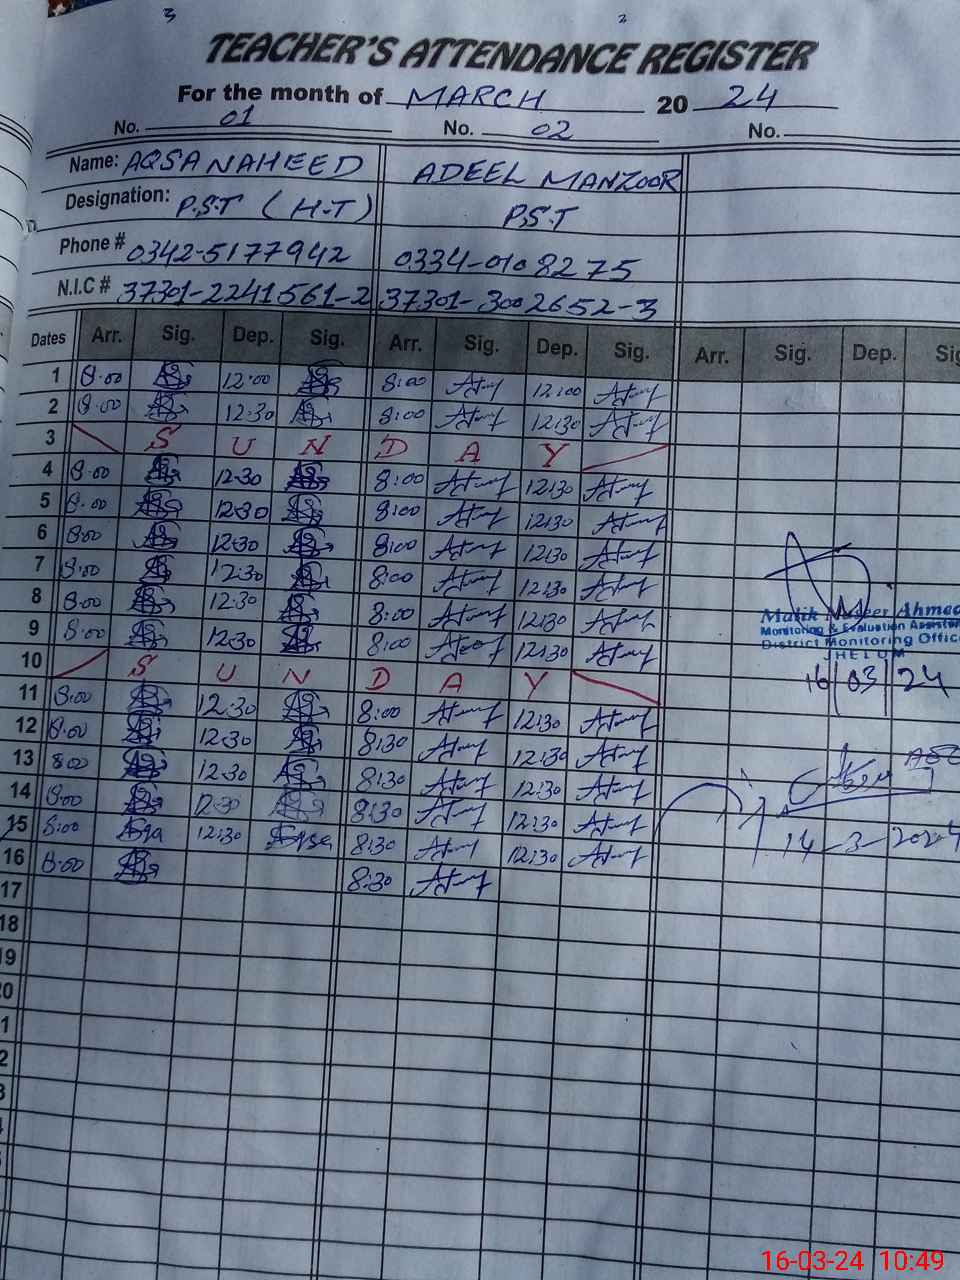 3 2
TEACHER'S ATTENDANCE REGISTER
For the month of MARCH 20 24
No. 01 No. 02 No.
Name: AQSA NAHEED ADEEL MANZOOR
Designation: P.S.T (H.T) P.S.T
Phone # 0342-5177942 0334-0108275
N.I.C # 37301-2241561-2 37301-3002652-3
Dates Arr. Sig. Dep. Sig. Arr. Sig. Dep. Sig. Arr. Sig. Dep. Sig
1 8:00 12:00 8:00 12:00
2 8:00 12:30 8:00 12:30
3 S U N D A Y
4 8:00 12:30 8:00 12:30
5 8:00 12:30 8:00 12:30
6 8:00 12:30 8:00 12:30
7 8:00 12:30 8:00 12:30
8 8:00 12:30 8:00 12:30
9 8:00 12:30 8:00 12:30
10 S U N D A Y
11 8:00 12:30 8:00 12:30
12 8:00 12:30 8:30 12:30
13 8:00 12:30 8:30 12:30
14 8:00 12:30 8:30 12:30
15 8:00 12:30 8:30 12:30
16 8:00 8:30
17
18
19
20
1
2
3
Malik Ahmed
Monitoring & Evaluation Assistan
District Monitoring Office
JHELUM
16/03/24
14-3-2024
16-03-24 10:49